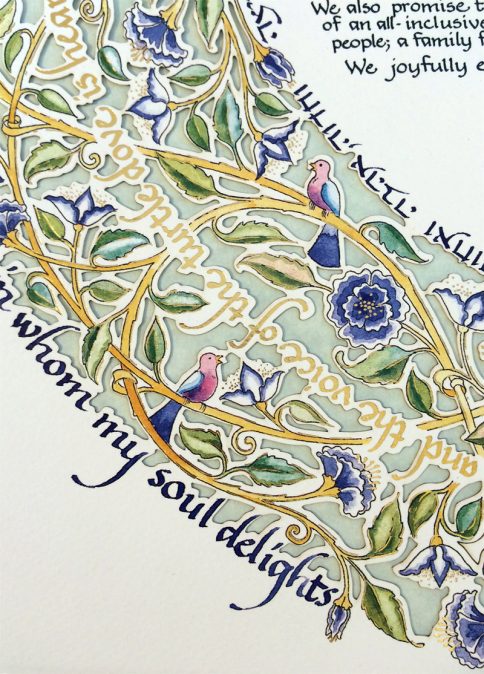 We also promise t
of an all-inclusive
people; a family f
We joyfully e
and the voice of the turtle dove is hear
in whom my soul delights